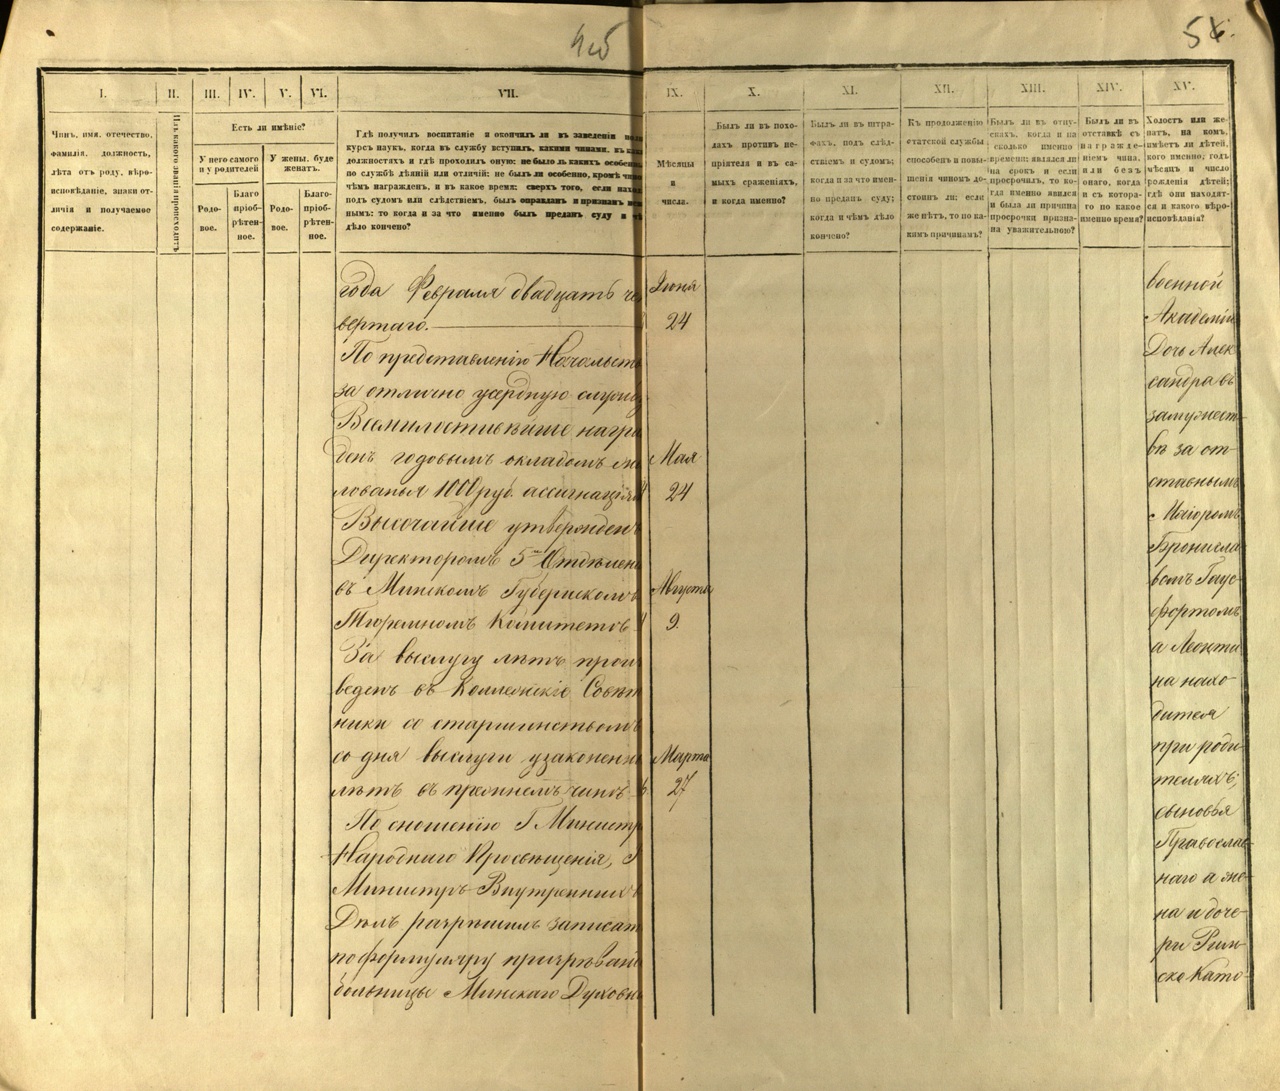 5
I.
II.
III.
IV.
V.
VI.
VII.
IX.
X.
XI.
XII.
XIII.
XIV.
XV.
Чинъ, имя, отечество,
фамилія, должность,
лѣта отъ роду, вѣро-
исповѣданіе, знаки от-
личія и получаемое
содержаніе.
Изъ какого званія происходитъ
Есть ли имѣніе?
У него самого
и у родителей
Родо-
вое.
Благо
пріоб-
рѣтен-
ное.
У жены, буде
женатъ.
Родо-
вое.
Благо-
пріоб-
рѣтен-
ное.
Гдѣ получилъ воспитаніе и окончилъ ли въ заведеніи
курсъ наукъ, когда въ службу вступилъ, какими чинами, въ
должностяхъ и гдѣ проходилъ оную: не было ль какихъ особен
по службѣ дѣяній или отличій: не былъ ли особенно, кромѣ чин
чѣмъ награжденъ, и въ какое время: сверхъ того, если наход
подъ судомъ или слѣдствіемъ, былъ оправданъ и признанъ
нымъ: то когда и за что именно былъ преданъ суду и чѣ
дѣло кончено?
Мѣсяцы
и
числа.
Былъ ли въ похо-
дахъ противъ не-
пріятеля и въ са-
мыхъ сраженіяхъ,
и когда именно?
Былъ ли въ штра-
фахъ, подъ слѣд-
ствіемъ и судомъ;
когда и за что имен-
но преданъ суду;
когда и чѣмъ дѣло
кончено?
Къ продолженію
статской службы
способенъ и повы-
шенія чиномъ до-
стоинъ ли; если
же нѣтъ, то по ка-
кимъ причинамъ?
Былъ ли въ отпу-
скахъ, когда и на
сколько именно
времени; являлся ли
на срокъ и если
просрочилъ, то ко-
гда именно явился
и была ли причина
просрочки призна-
на уважительною?
Былъ ли въ
отставкѣ съ
награжде-
ніемъ чина,
или безъ
онаго, когда
и съ котора-
го по какое
именно время?
Холостъ или же-
натъ, на комъ,
имѣетъ ли дѣтей,
кого именно; годъ
мѣсяцъ и число
рожденія дѣтей;
гдѣ они находят-
ся и какого вѣро-
исповѣданія?
года Февраля двадцать че
вертаго.
По представленію Начальств
за отлично усердную служ
Всемилостивѣйше награ
денъ годовымъ окладомъ жа
лованья 1000 руб. ассигнація
Высочайше утвержденъ
Директоромъ 5го Отдѣлен
въ Минскомъ Губернскомъ
Тюремномъ Комитетѣ
За выслугу лѣтъ произ
веденъ въ Коллежскіе Совѣт
ники со старшинствомъ
со дня выслуги узаконен
лѣтъ въ прежнемъ чинѣ
По сношенію Г. Министр
Народнаго Просвѣщенія, Г
Министръ Внутреннихъ
Дѣлъ разрѣшилъ записат
по формуляру призрѣвані
больницы Минскаго Духовн
Іюня
24
Мая
24
Августа
9.
Марта
27
военной
Академіи
Дочь Алек
сандра въ
замужест-
вѣ за от-
ставнымъ
Маіоромъ
Бронисла
вомъ Гаус-
фортомъ
а Леонти
на нахо-
дится
при роди-
теляхъ;
сыновья
Православ-
наго а же-
на и доче-
ри Рим-
ско Като-